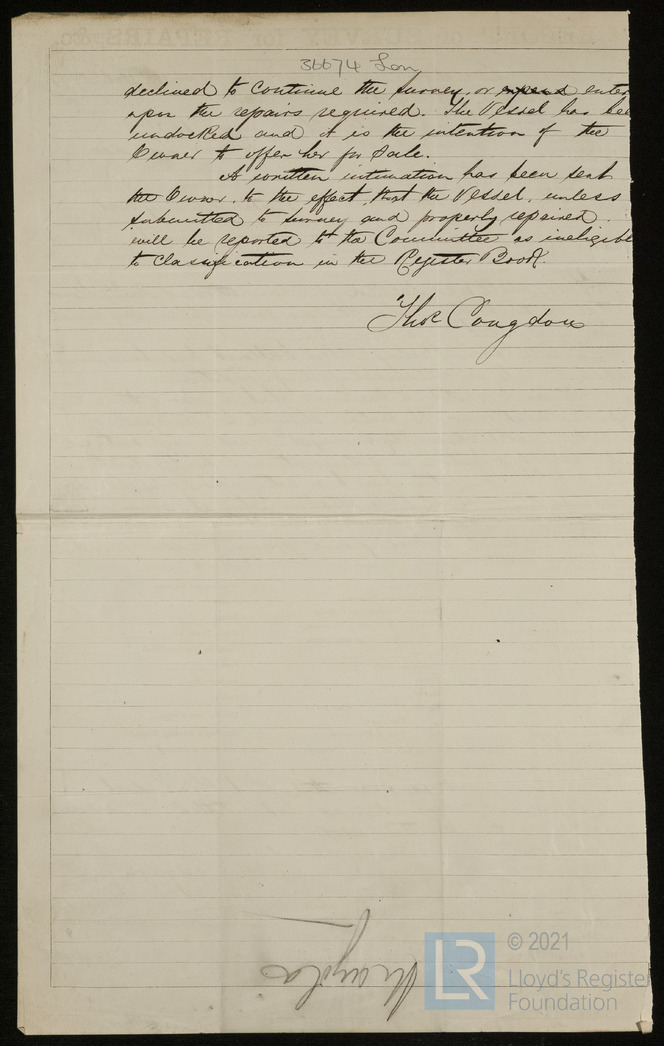 36674 Lon
declined to continue the survey, or expend enter
upon the repairs required. The Vessel has bee
undocked and it is the intention of the
Owner to offer her for Sale.
A written intimation has been sent
the Owner, to the effect that the Vessel, unless
submitted to survey and properly repaired
will be reported to the Committee as ineligible
to classification in the Register Book.
Thos Congdon
© 2021
LR
Lloyd's Register
Foundation